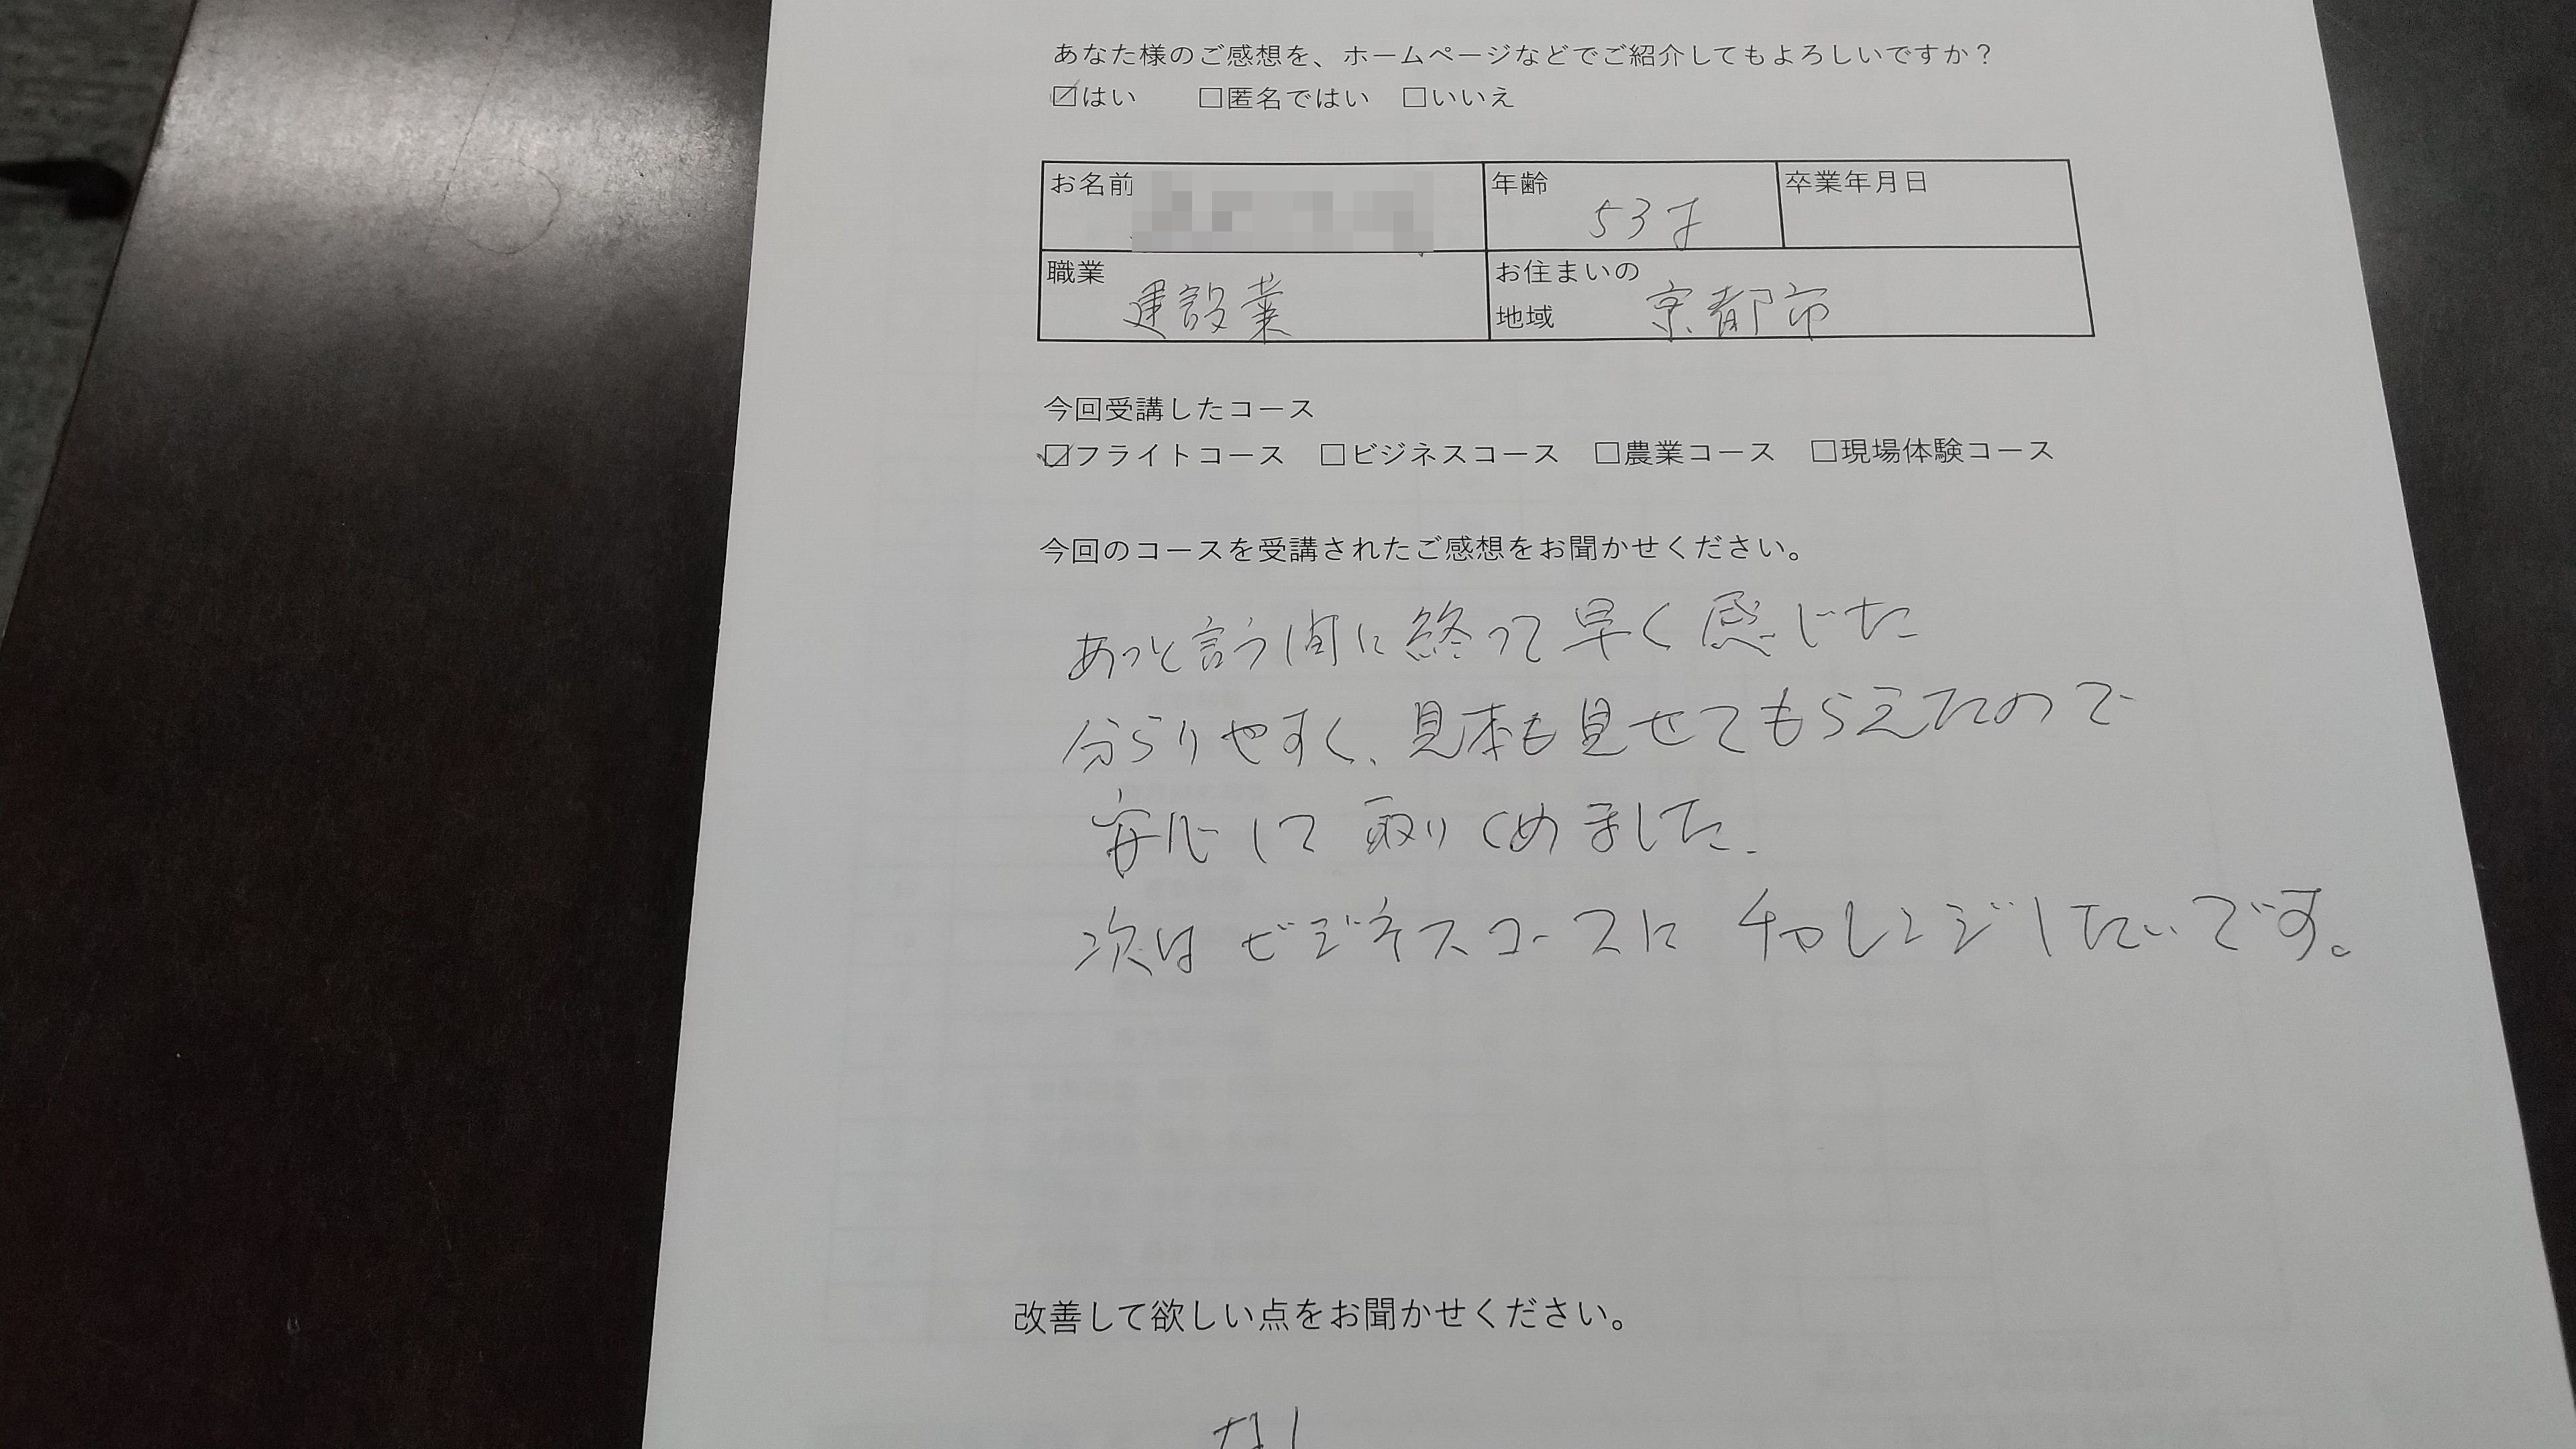 あなた様のご感想を、ホームページなどでご紹介してもよろしいですか？
☑はい　□匿名ではい　□いいえ
お名前
年齢 53才
卒業年月日
職業 建設業
お住まいの
地域 京都市
今回受講したコース
☑フライトコース　□ビジネスコース　□農業コース　□現場体験コース
今回のコースを受講されたご感想をお聞かせください。
あっと言う間に終って早く感じた
分らりやすく、見本も見せてもらえたので
安心して取りくめました.
次はビジネスコースに チャレンジしたいです。
改善して欲しい点をお聞かせください。
なし